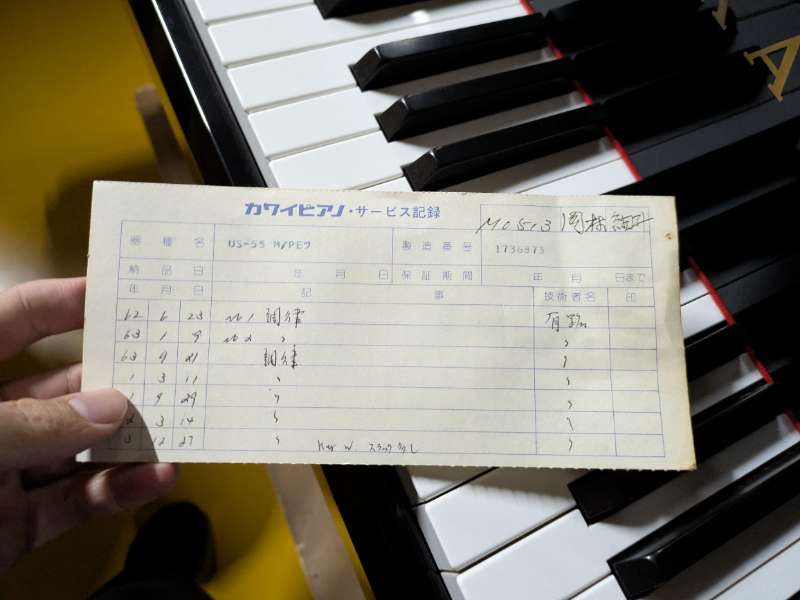 カワイピアノ・サービス記録
M0513
器種名 US-55 M/PEワ 製造番号 1736973
納品日 年 月 日 保証期間 年 月 日まで
年 月 日 記 事 技術者名 印
62 6 23 No 1 調律
63 1 9 No 2 〃 〃
63 9 21 調律 〃
1 3 11 〃 〃
1 9 29 〃 〃
2 3 14 〃 〃
3 12 27 〃 Key W. 〃
A